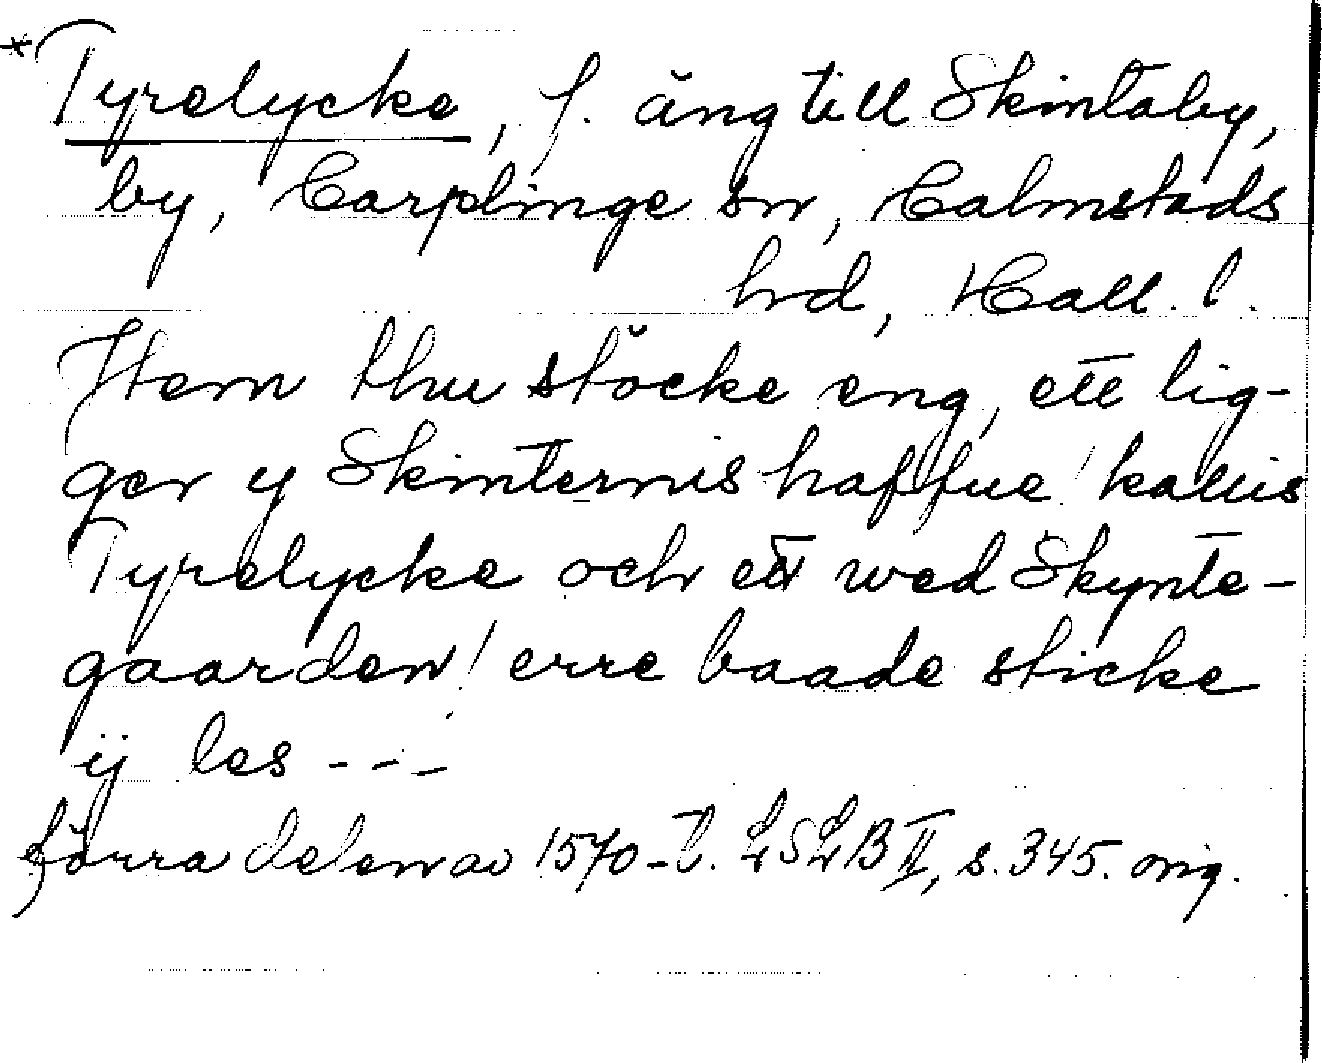 *Tyrelycke, f. äng till Skintaby,
by, Harplinge sn, Halmstads
hd, Hall. l.
Item thu støcke eng, ett lig-
ger y Skinternis haffue / kallis
Tyrelycke och ett wed Skynte-
gaarden / erre baade sticke
ij les ---
förra delen av 1570-t. LSLB II, s. 345. orig.